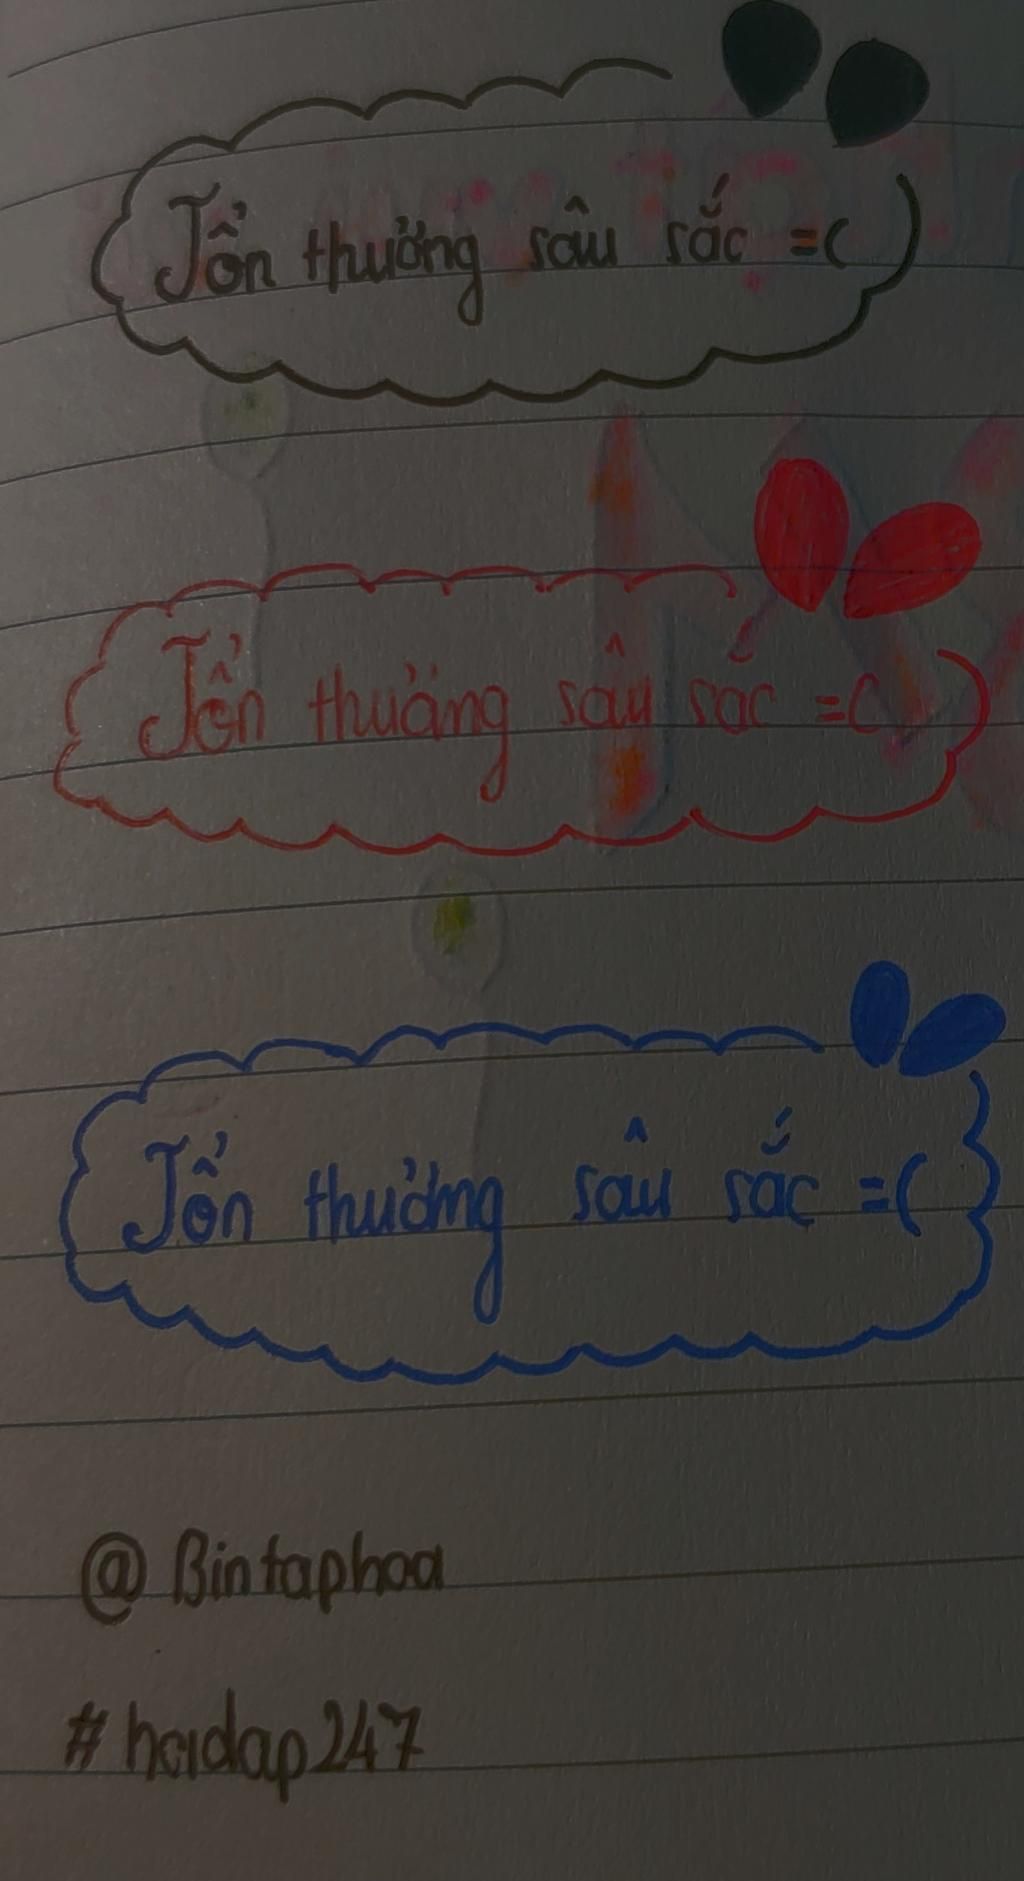 Tổn thưởng sâu sắc =(
Tổn thưởng sâu sắc =(
Tổn thưởng sâu sắc =(
@Bintaphoa
#hoidap247